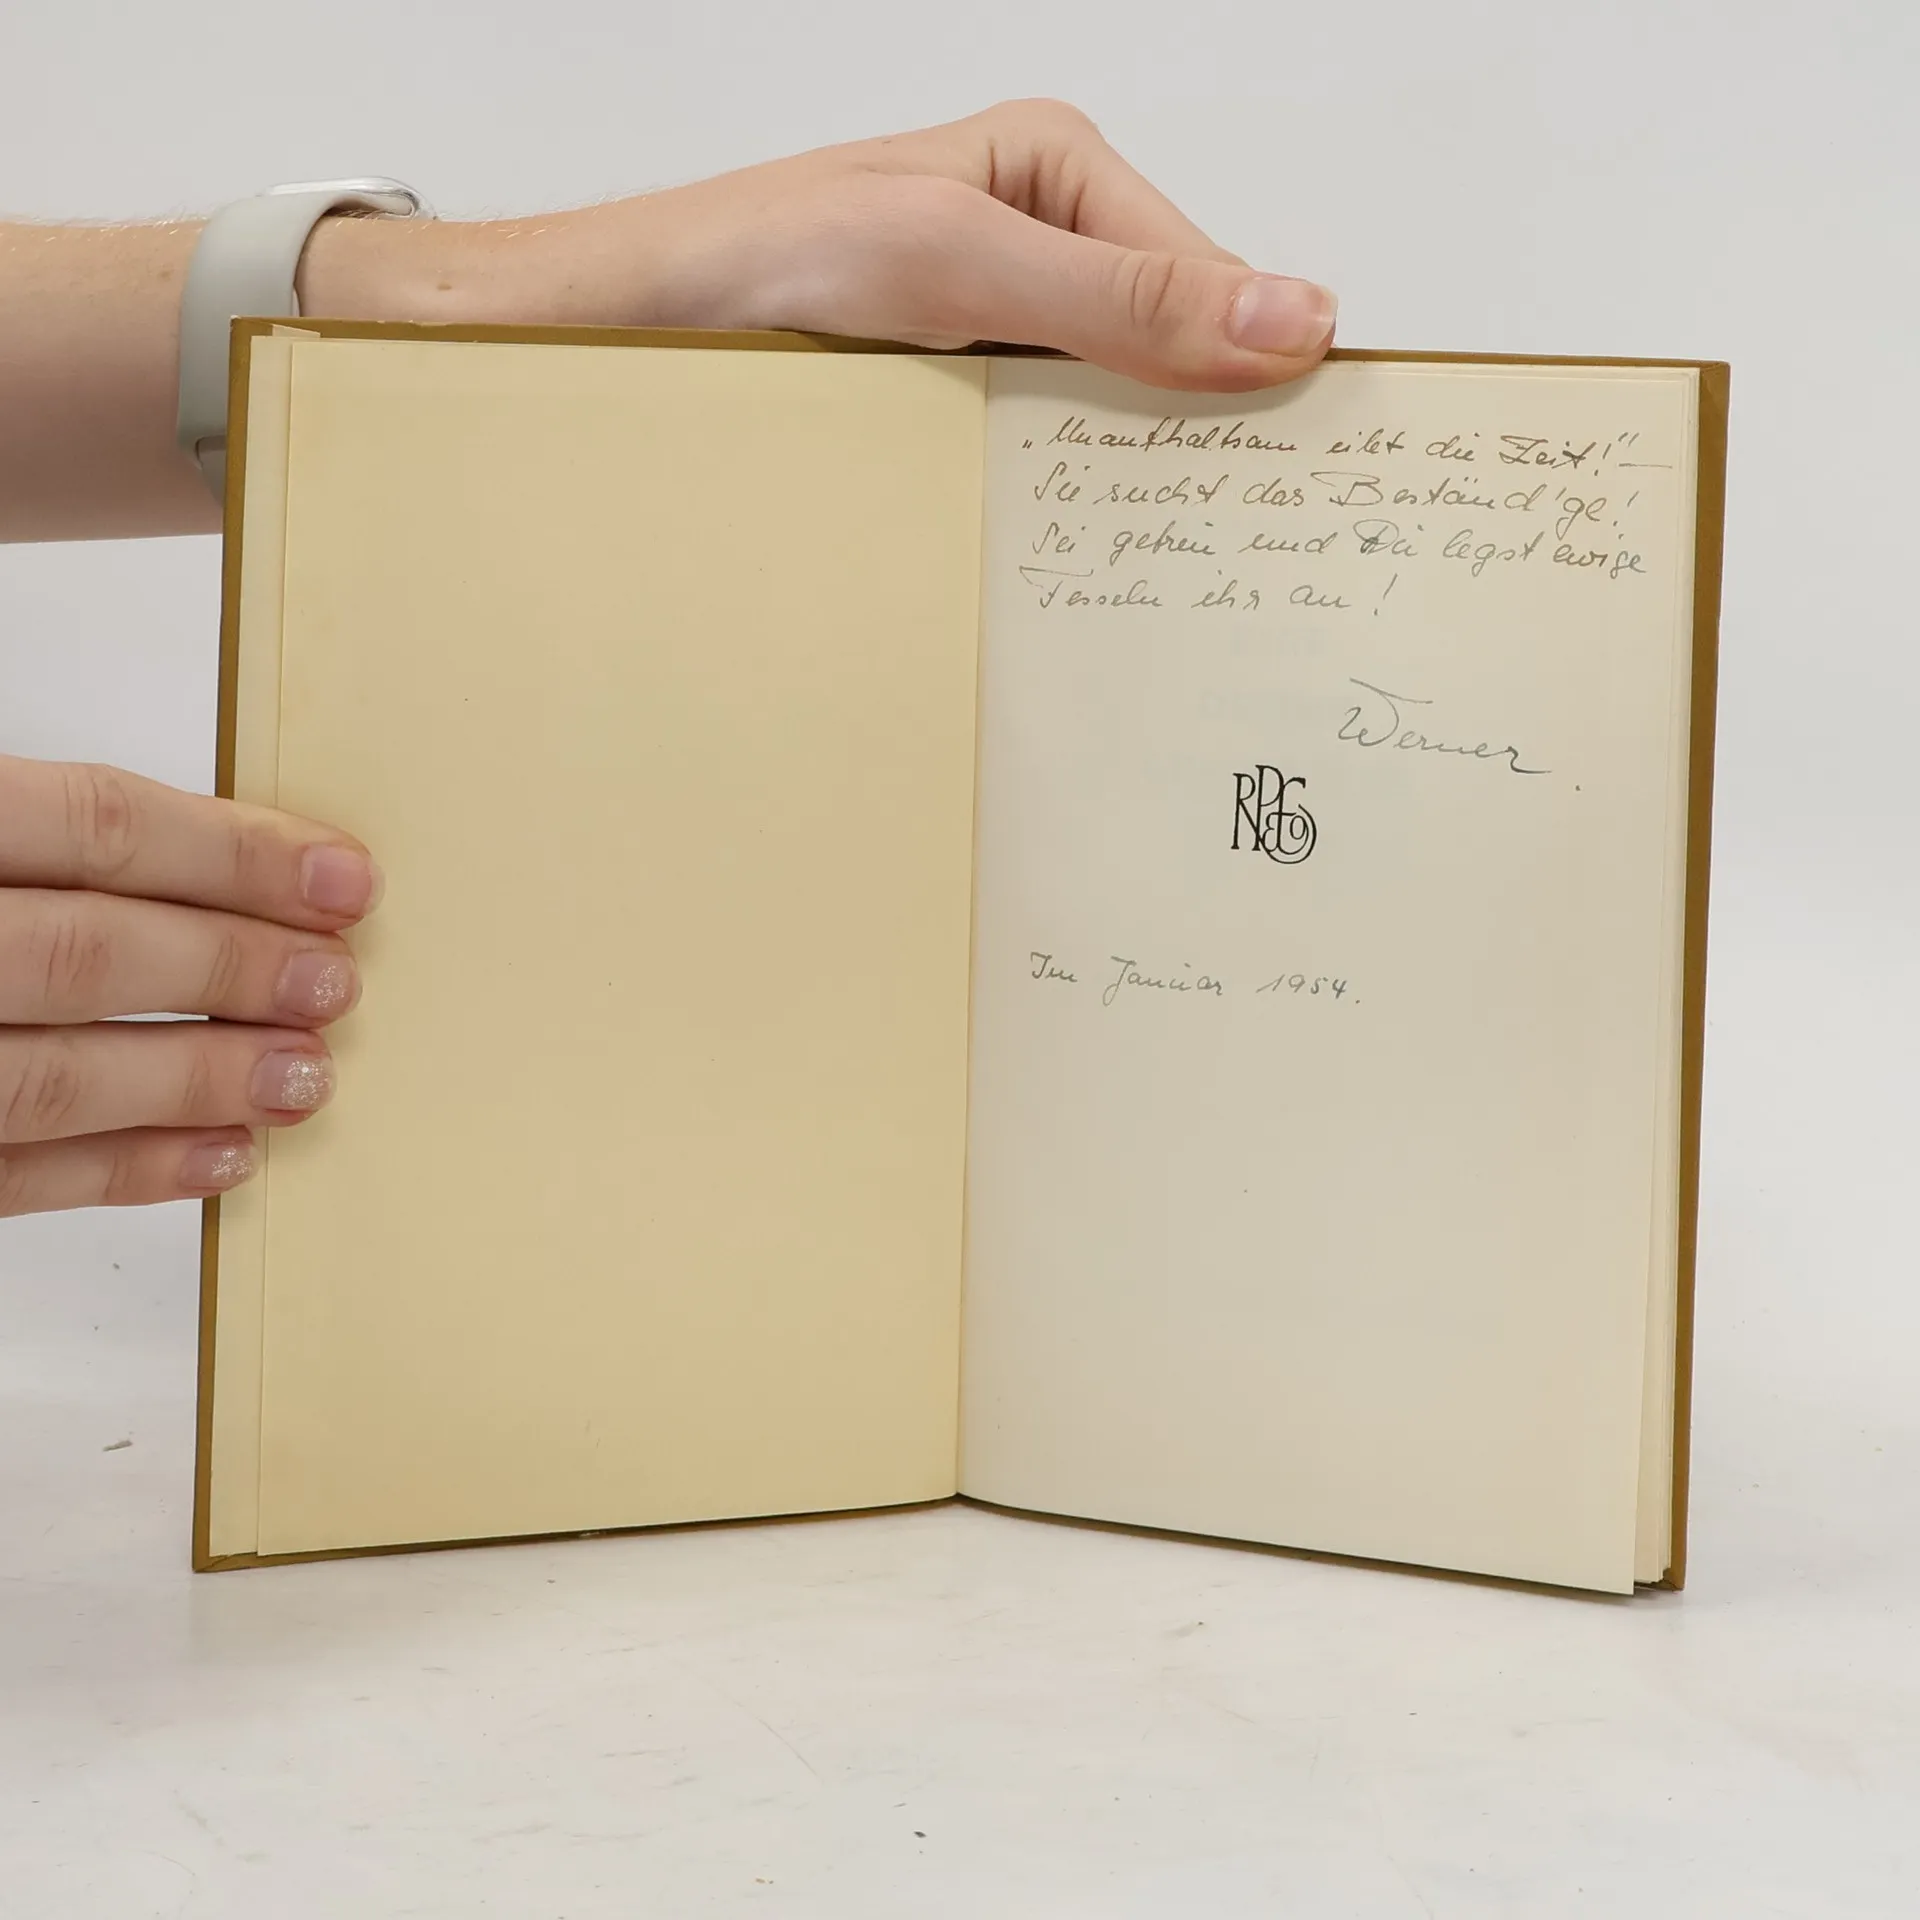 „Unaufhaltsam eilet die Zeit!" —
Sie sucht das Beständ'ge!
Sei getreu und Du legst ewige
Fesseln ihr an!
Werner.
RP&Co
Im Januar 1954.